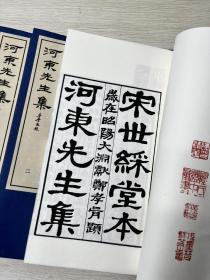 宋世綵堂本
歲在昭陽大淵獻鄭孝胥題
河東先生集
河東先生集
二
河東先生集